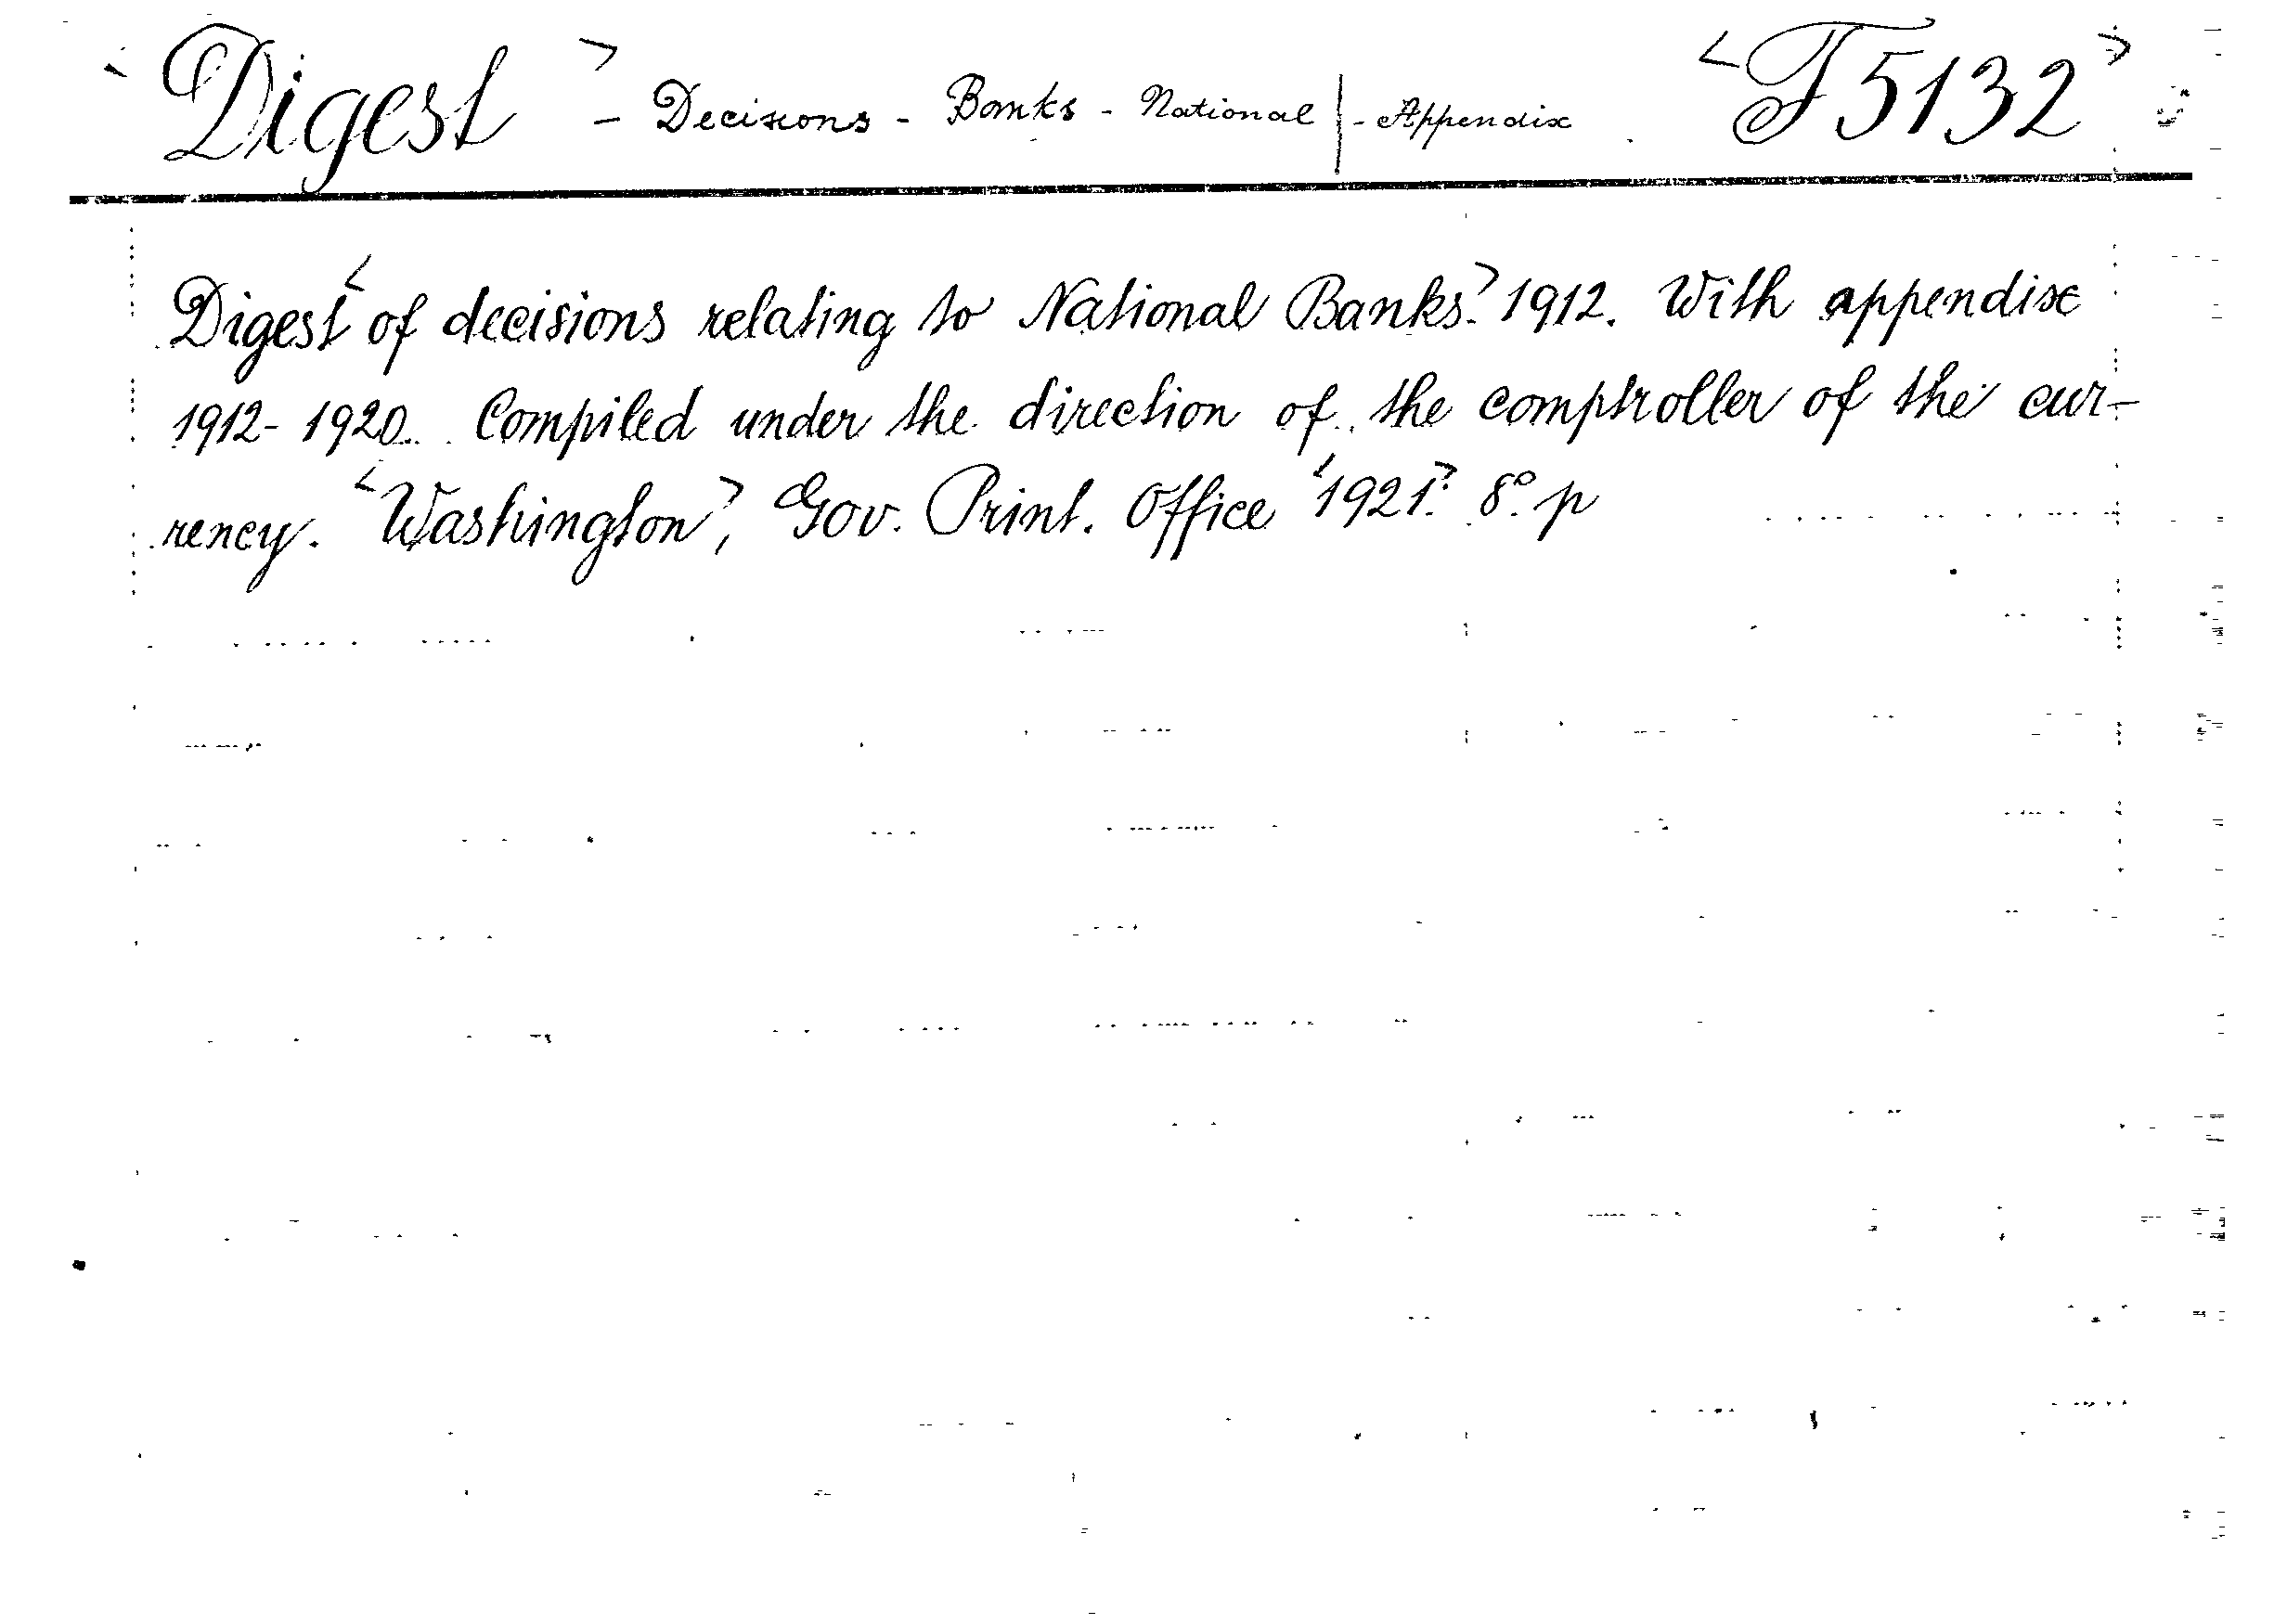 <Digest> - Decisions - Banks - National | - Appendix <T5132>
Digest < of decisions relating to National Banks.> 1912. With appendix
1912-1920. Compiled under the direction of the comptroller of the cur-
rency. <Washington>, Gov. Print. Office <1921>. 8° p